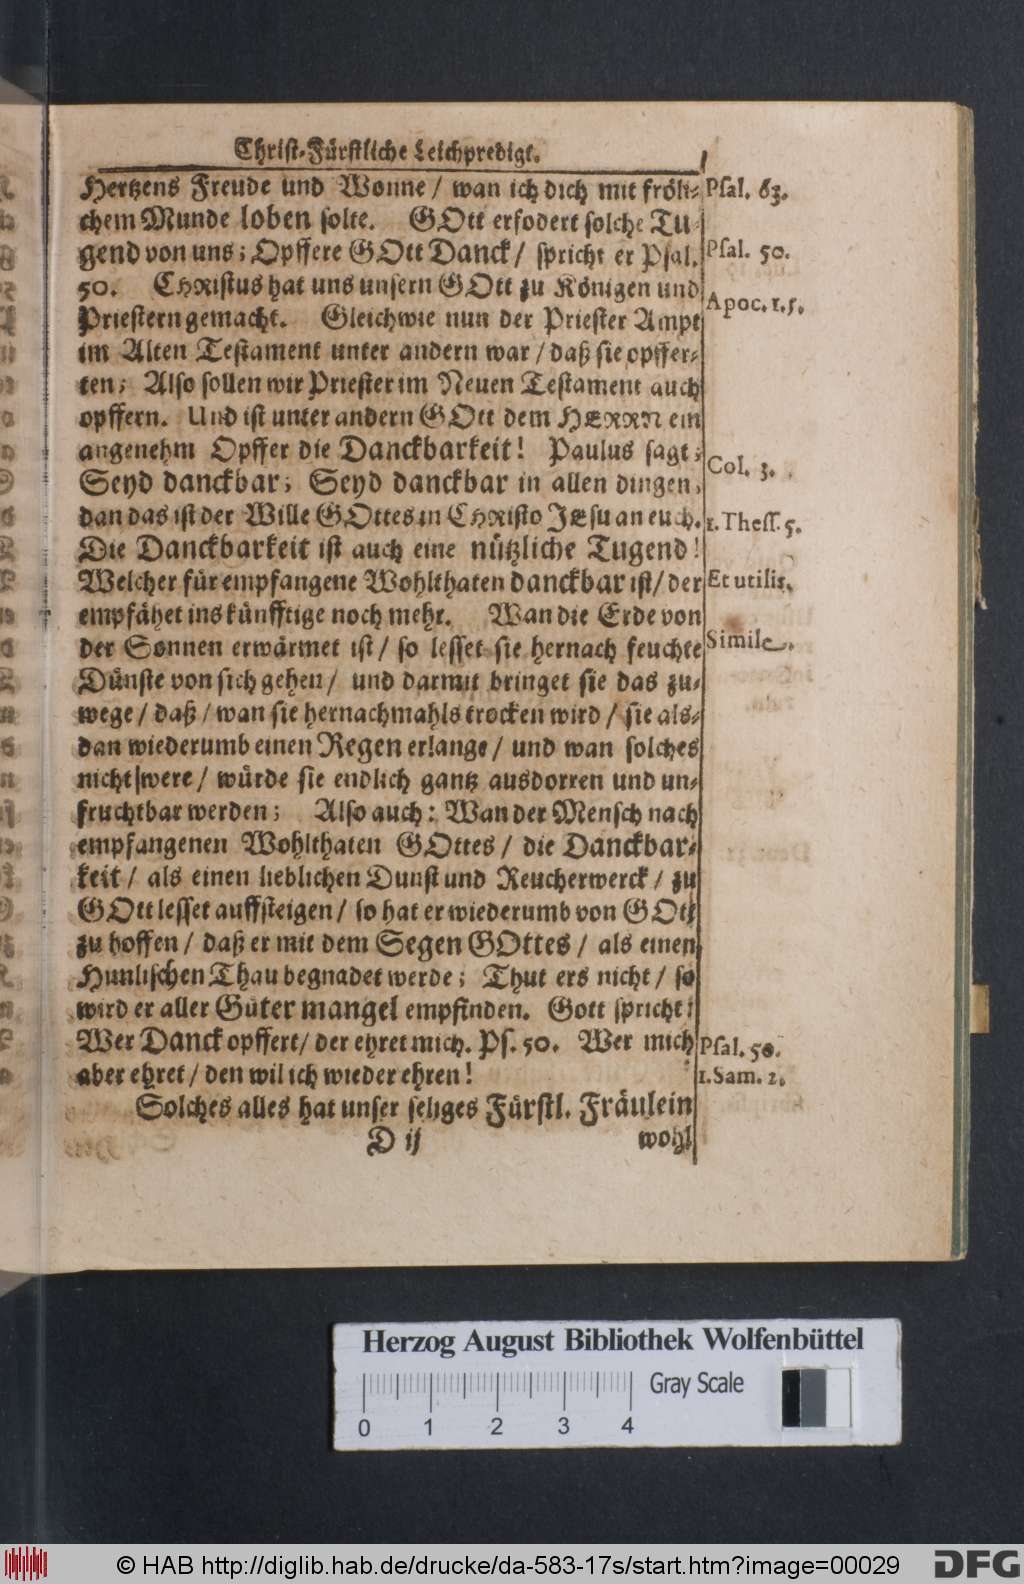 Christ-Fürstliche Leichpredigt.
Hertzens Freude und Wonne / wan ich dich mit fröli-
Psal. 63.
chem Munde loben solte. GOtt erfodert solche Tu-
gend von uns; Opffere GOtt Danck / spricht er Psal.
Psal. 50.
50. CHRistus hat uns unsern GOtt zu Königen und
Apoc. 1.5.
Priestern gemacht. Gleichwie nun der Priester Ampt
im Alten Testament unter andern war / daß sie opffer-
ten; Also sollen wir Priester im Neuen Testament auch
opffern. Und ist unter andern GOtt dem HERRN ein
angenehm Opffer die Danckbarkeit! Paulus sagt;
Col. 3.
Seyd danckbar; Seyd danckbar in allen dingen,
dan das ist der Wille GOttes in CHRisto JEsu an euch.
1. Thess. 5.
Die Danckbarkeit ist auch eine nützliche Tugend!
Welcher für empfangene Wohlthaten danckbar ist / der
Et utilis.
empfähet ins künfftige noch mehr. Wan die Erde von
der Sonnen erwärmet ist / so lesset sie hernach feuchte
Simile.
Dünste von sich gehen / und darmit bringet sie das zu-
wege / daß / wan sie hernachmahls trocken wird / sie als-
dan wiederumb einen Regen erlange / und wan solches
nicht were / würde sie endlich gantz ausdorren und un-
fruchtbar werden; Also auch: Wan der Mensch nach
empfangenen Wohlthaten GOttes / die Danckbar-
keit / als einen lieblichen Dunst und Reucherwerck / zu
GOtt lesset auffsteigen / so hat er wiederumb von GOtt
zu hoffen / daß er mit dem Segen GOttes / als einen
Himlischen Thau begnadet werde; Thut ers nicht / so
wird er aller Güter mangel empfinden. Gott spricht:
Wer Danck opffert / der ehret mich. Ps. 50. Wer mich
Psal. 50.
aber ehret / den wil ich wieder ehren!
1. Sam. 2.
Solches alles hat unser seliges Fürstl. Fräulein
D ij
wohl
Herzog August Bibliothek Wolfenbüttel
Gray Scale
0 1 2 3 4
© HAB http://diglib.hab.de/drucke/da-583-17s/start.htm?image=00029
DFG